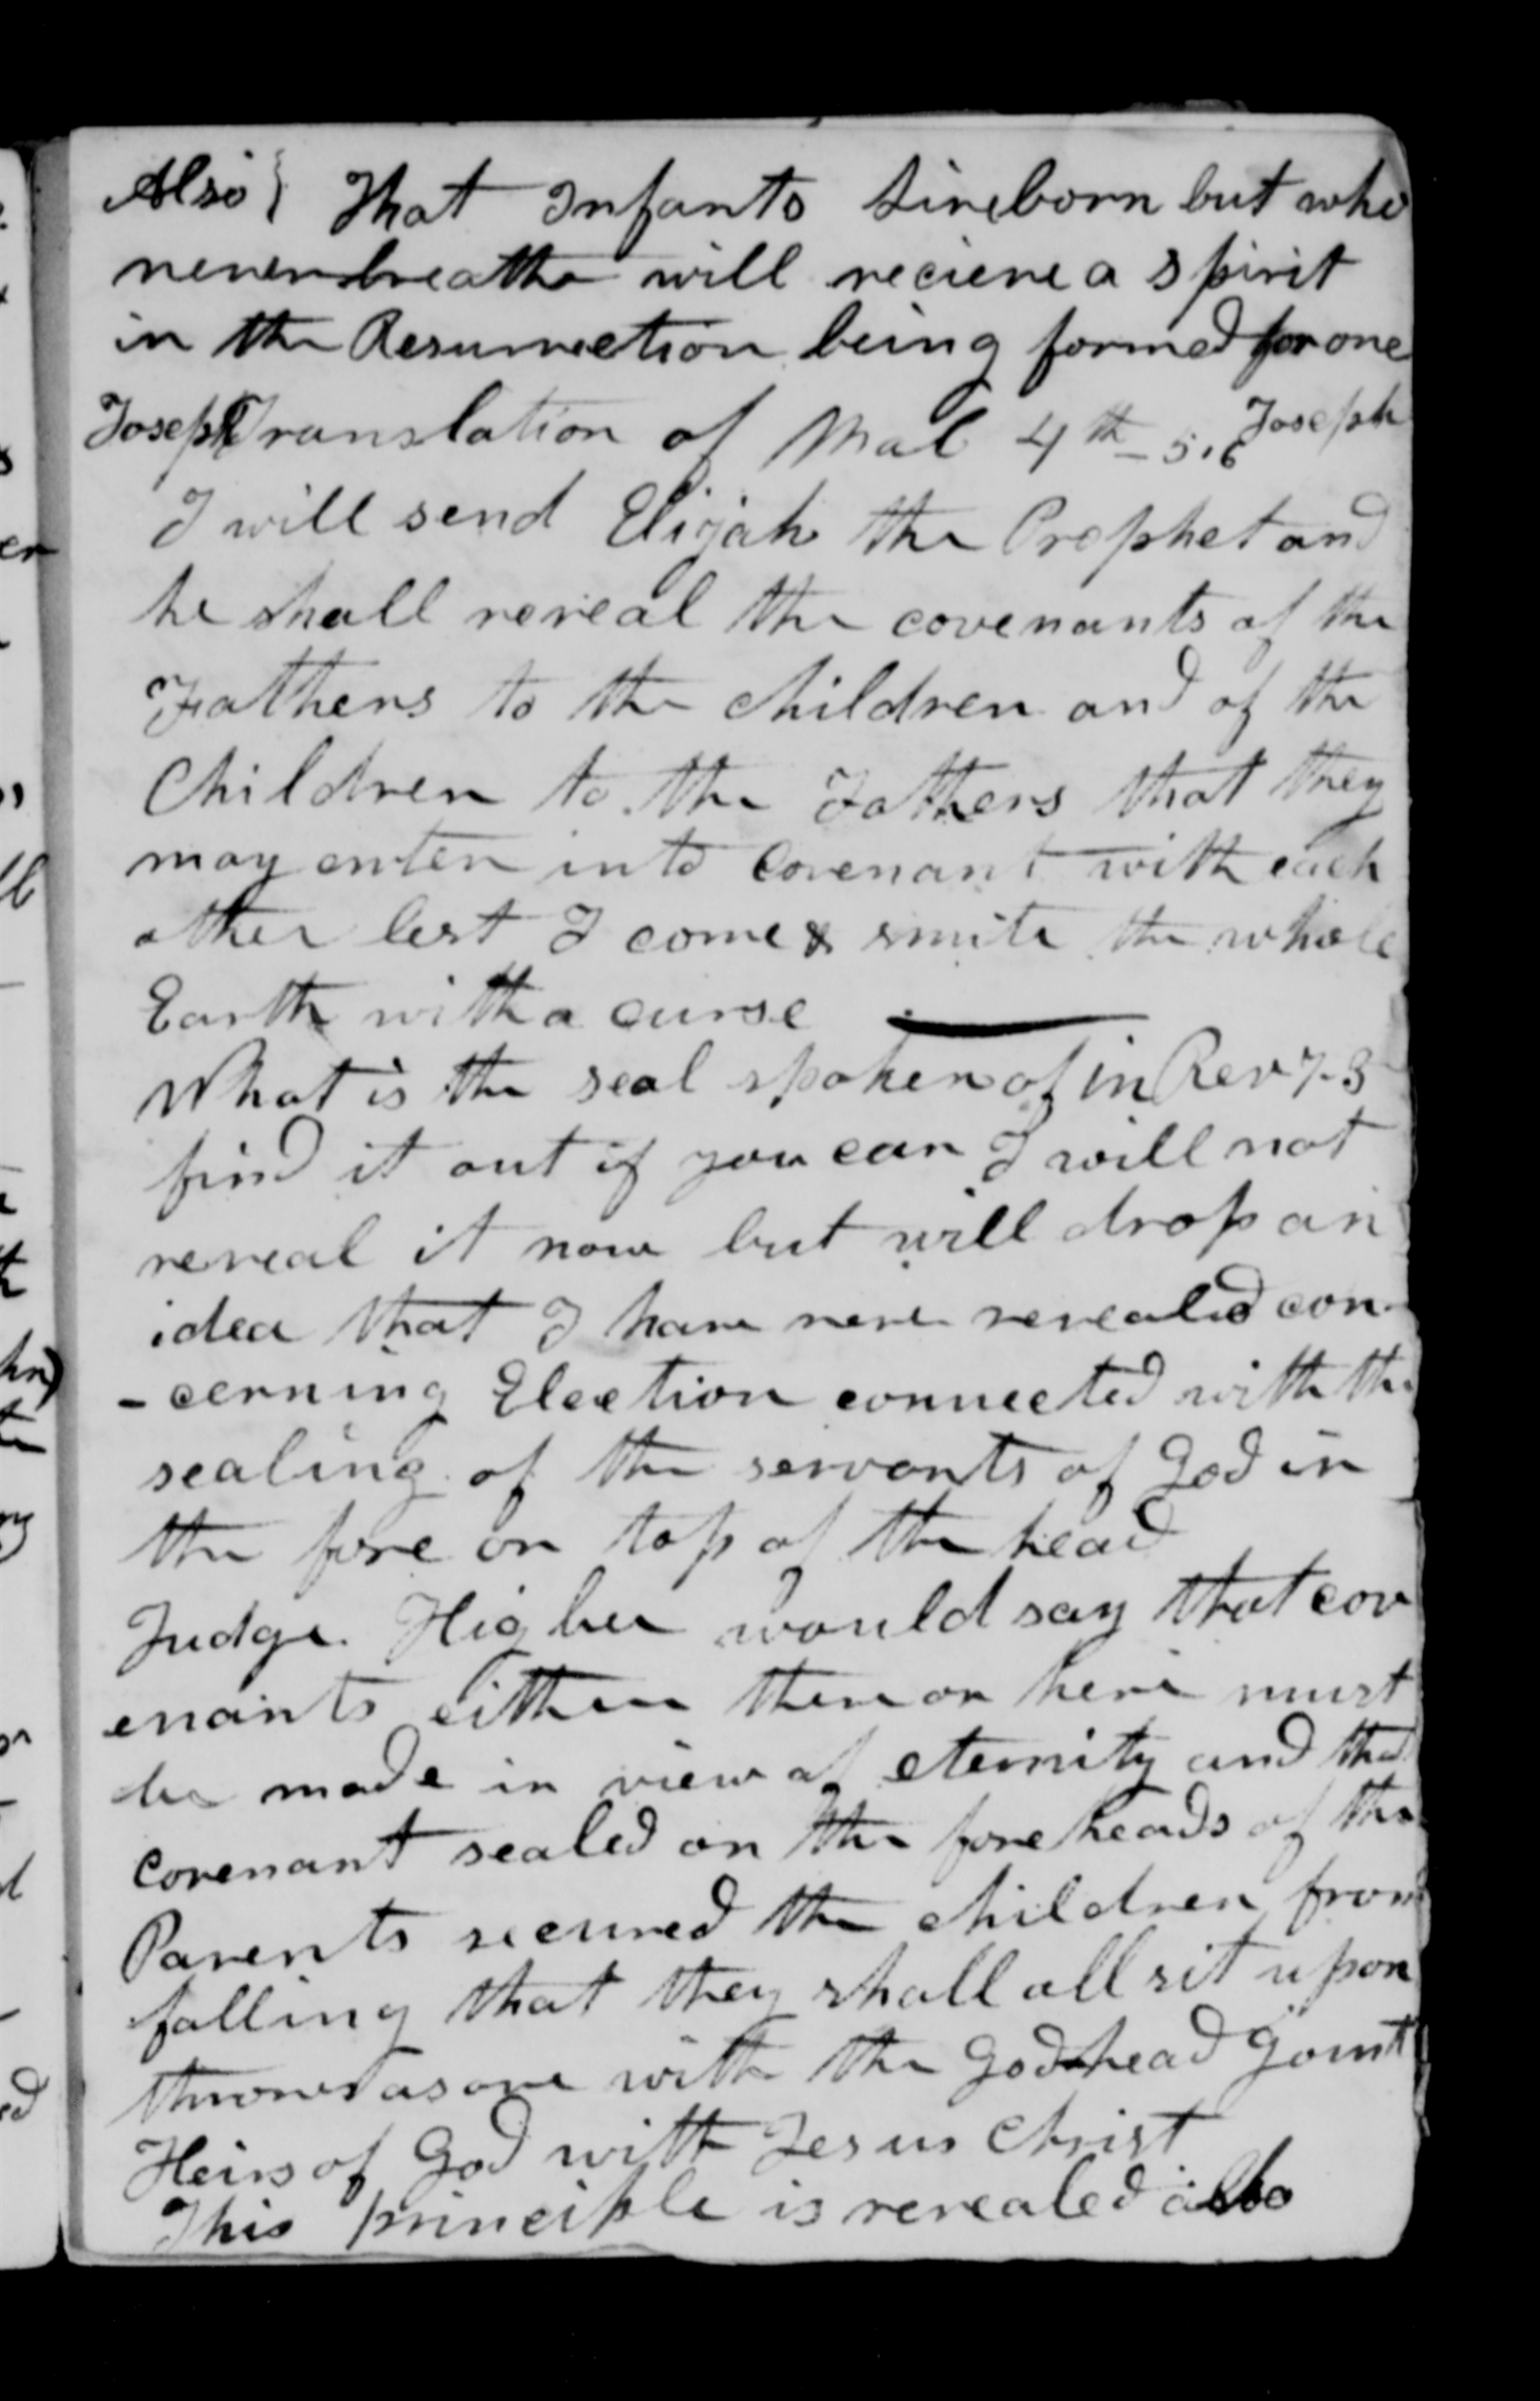 Also } That Infants liveborn but who
never breathe will recieve a spirit
in the Resurrection being formed for one
Joseph Translation of Mal 4th – 5.6 Joseph
I will send Elijah the Prophet and
he shall reveal the covenants of the
Fathers to the children and of the
Children to the Fathers that they
may enter into Covenant with each
other lest I come & smite the whole
Earth with a curse
What is the seal spoken of in Rev 7-3
find it out if you can I will not
reveal it now but will drop an
idea that I have never revealed con-
-cerning Election connected with the
sealing of the servants of God in
the fore or top of the head
Judge Higbee would say that cov
enants either there or here must
be made in view of eternity and the
covenant sealed on the fore heads of the
Parents secured the children from
falling that they shall all sit upon
thrones as one with the Godhead joint
Heirs of God with Jesus Christ
This principle is revealed also